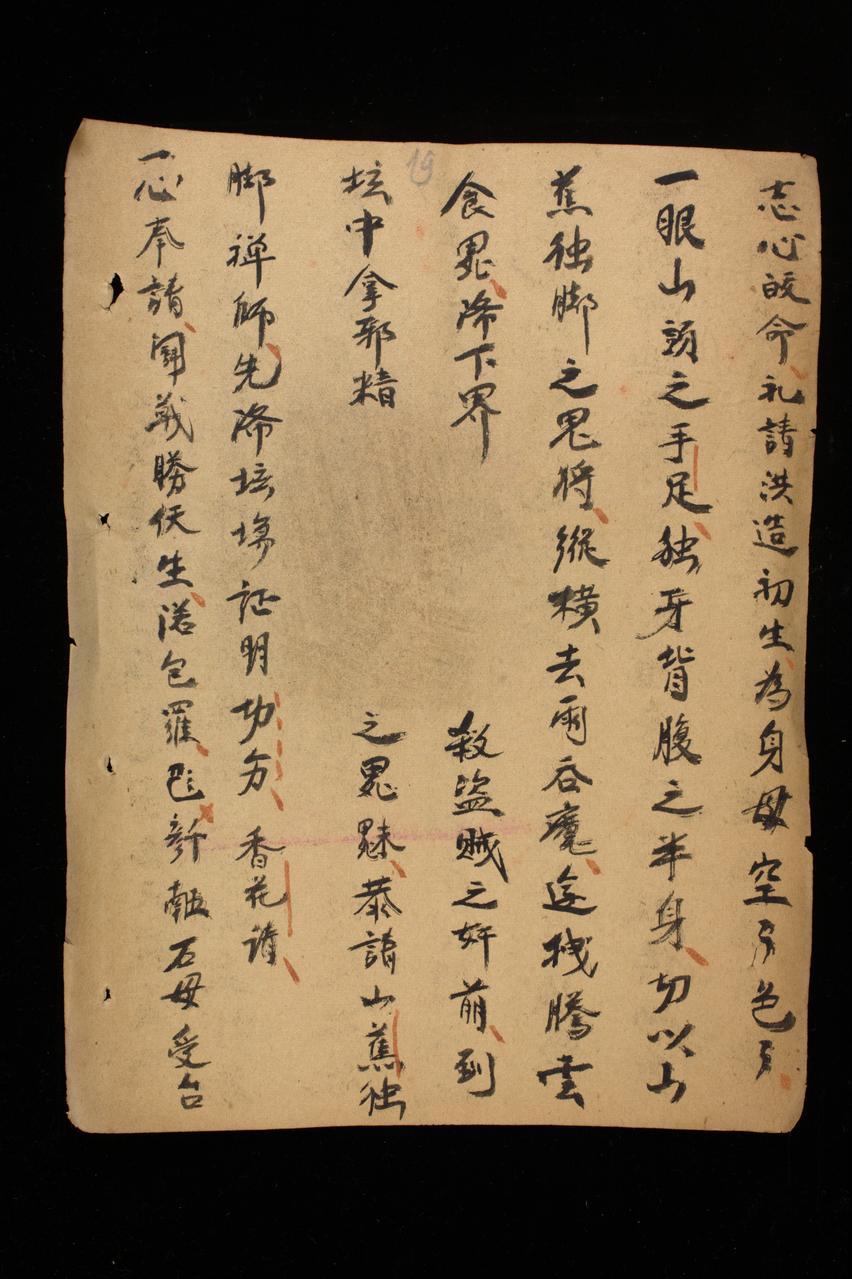 志心皈命礼請洪造初生為身母空
一眼山頭之手足独牙背腹之半身切以山
蕉独脚之鬼将縱橫去雨吞魔騰雲
食鬼降下界 殺盜贼之奸萠到
坛中拿邪精 之鬼魅恭請山蕉独
脚禅師先降坛塲証明功 香花請
一心奉請闘戦勝仸生包羅石母受台
19